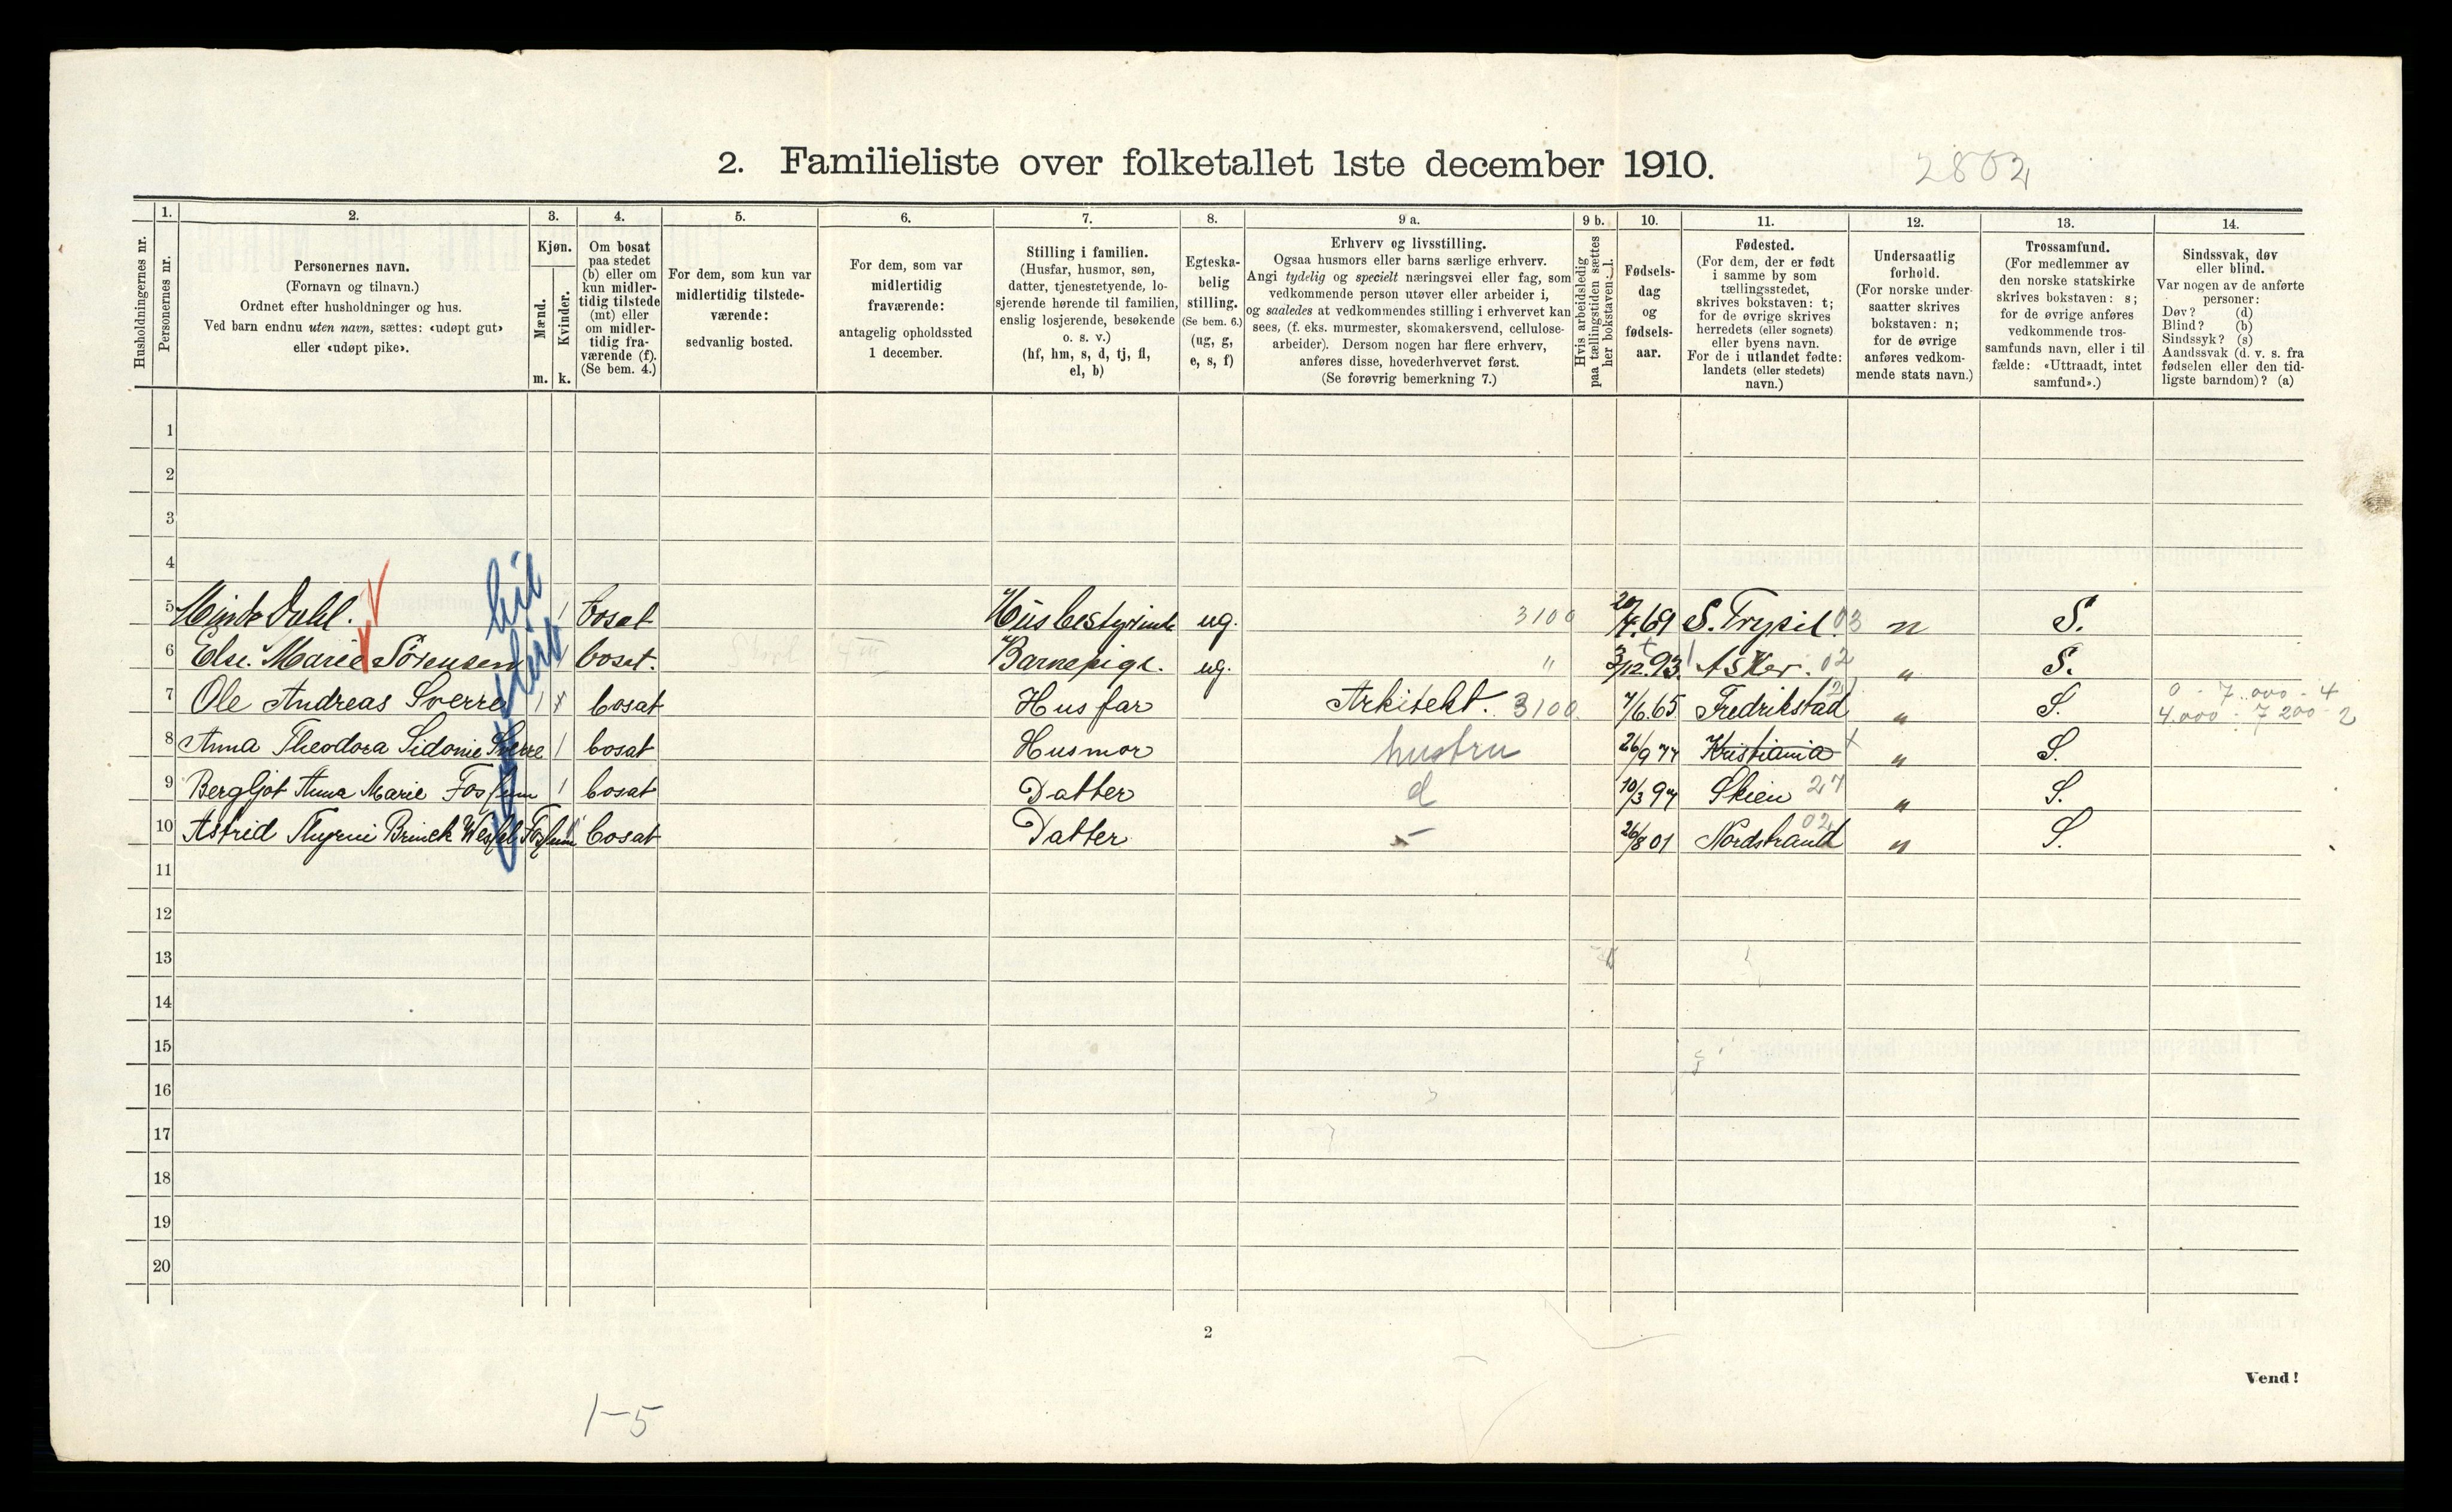 2. Familieliste over folketallet 1ste december 1910.
2802
1. 2. 3. 4. 5. 6. 7. 8. 9 a. 9 b. 10. 11. 12. 13. 14.
Husholdningernes nr.
Personernes nr.
Personernes navn.
(Fornavn og tilnavn.)
Ordnet efter husholdninger og hus.
Ved barn endnu uten navn, sættes: «udøpt gut»
eller «udøpt pike».
Kjøn.
Mænd.
m.
Kvinder.
k.
Om bosat
paa stedet
(b) eller om
kun midler-
tidig tilstede
(mt) eller
om midler-
tidig fra-
værende (f).
(Se bem. 4.)
For dem, som kun var
midlertidig tilstede-
værende:
sedvanlig bosted.
For dem, som var
midlertidig
fraværende:
antagelig opholdssted
1 december.
Stilling i familien.
(Husfar, husmor, søn,
datter, tjenestetyende, lo-
sjerende hørende til familien,
enslig losjerende, besøkende
o. s. v.)
(hf, hm, s, d, tj, fl,
el, b)
Egteska-
belig
stilling.
(Se bem. 6.)
(ug, g,
e, s, f)
Erhverv og livsstilling.
Ogsaa husmors eller barns særlige erhverv.
Angi tydelig og specielt næringsvei eller fag, som
vedkommende person utøver eller arbeider i,
og saaledes at vedkommendes stilling i erhvervet kan
sees, (f. eks. murmester, skomakersvend, cellulose-
arbeider). Dersom nogen har flere erhverv,
anføres disse, hovederhvervet først.
(Se forøvrig bemerkning 7.)
Hvis arbeidsledig
paa tællingstiden sættes
her bokstaven: l.
Fødsels-
dag
og
fødsels-
aar.
Fødested.
(For dem, der er født
i samme by som
tællingsstedet,
skrives bokstaven: t;
for de øvrige skrives
herredets (eller sognets)
eller byens navn.
For de i utlandet fødte:
landets (eller stedets)
navn.)
Undersaatlig
forhold.
(For norske under-
saatter skrives
bokstaven: n;
for de øvrige
anføres vedkom-
mende stats navn.)
Trossamfund.
(For medlemmer av
den norske statskirke
skrives bokstaven: s;
for de øvrige anføres
vedkommende tros-
samfunds navn, eller i til-
fælde: «Uttraadt, intet
samfund».)
Sindssvak, døv
eller blind.
Var nogen av de anførte
personer:
Døv? (d)
Blind? (b)
Sindssyk? (s)
Aandssvak (d. v. s. fra
fødselen eller den tid-
ligste barndom)? (a)
1
2
3
4
5 Dahl. 1 bosat ug. 3100 S. Trysil. 03 n S.
6 Else Marie Sörensen 1 bosat. Barnepige. ug. " 3/12.93. Asker. 02 " S.
7 Ole Andreas Sverre 1 bosat Husfar Arkitekt. 3100 7/6.65 Fredrikstad " S. 0 - 7.000 - 4
4.000 - 7200 - 2
8 Anna Theodora Sidonie Sverre 1 bosat Husmor hustru 26/9 77 Kristiania " S.
9 Bergljot Anna Marie Fossum 1 bosat Datter d 10/3 97 Skien 27 " S.
10 Astrid Thyrni Brinck Wessel Fossum bosat Datter 26/8 01 Nordstrand 02 " S.
11
12
13
14
15
16
17
18
19
20
2
Vend!
1-5